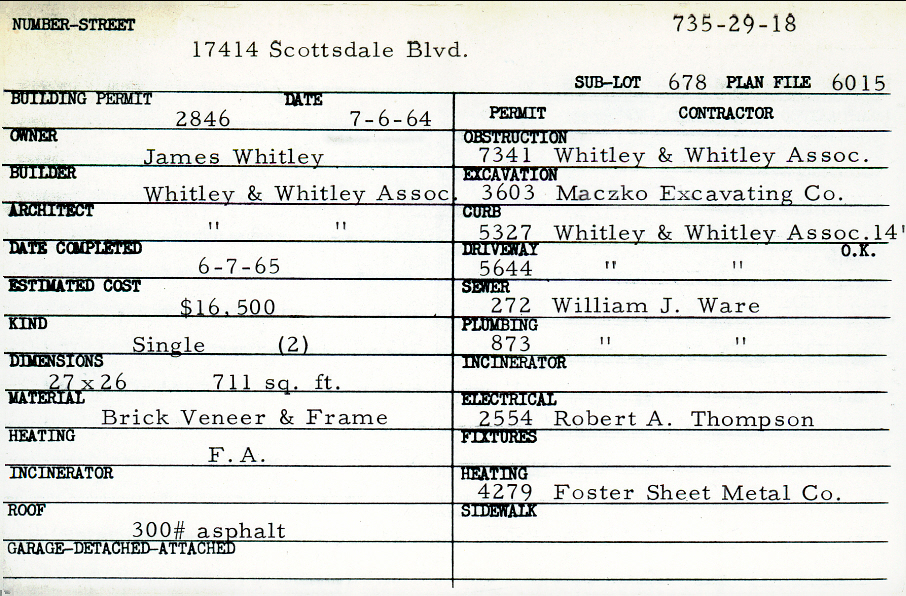 NUMBER-STREET 735-29-18
17414 Scottsdale Blvd.
SUB-LOT 678 PLAN FILE 6015
BUILDING PERMIT DATE
2846 7-6-64
OWNER
James Whitley
BUILDER
Whitley & Whitley Assoc.
ARCHITECT
" "
DATE COMPLETED
6-7-65
ESTIMATED COST
$16,500
KIND
Single (2)
DIMENSIONS
27x26 711 sq. ft.
MATERIAL
Brick Veneer & Frame
HEATING
F.A.
INCINERATOR
ROOF
300# asphalt
GARAGE-DETACHED-ATTACHED
PERMIT CONTRACTOR
OBSTRUCTION
7341 Whitley & Whitley Assoc.
EXCAVATION
3603 Maczko Excavating Co.
CURB
5327 Whitley & Whitley Assoc.14'
DRIVEWAY O.K.
5644 " "
SEWER
272 William J. Ware
PLUMBING
873 " "
INCINERATOR
ELECTRICAL
2554 Robert A. Thompson
FIXTURES
HEATING
4279 Foster Sheet Metal Co.
SIDEWALK